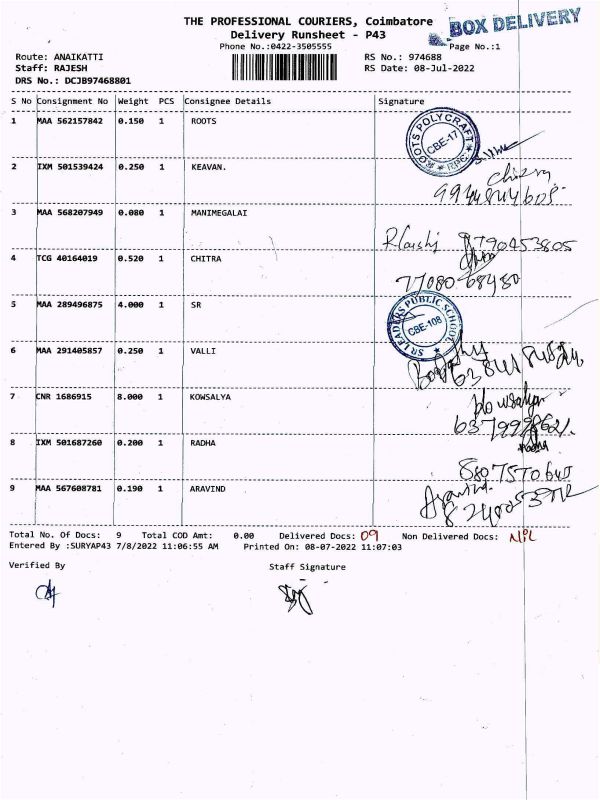 THE PROFESSIONAL COURIERS, Coimbatore
Delivery Runsheet - P43
BOX DELIVERY
Phone No.:0422-3505555
Page No.:1
Route: ANAIKATTI
RS No.: 974688
Staff: RAJESH
RS Date: 08-Jul-2022
DRS No.: DCJB97468801
S No Consignment No Weight PCS Consignee Details Signature
1 MAA 562157842 0.150 1 ROOTS
ROOTS POLYCRAFT RPC CBE-17
2 IXM 501539424 0.250 1 KEAVAN.
3 MAA 568207949 0.080 1 MANIMEGALAI
8790453805
4 TCG 40164019 0.520 1 CHITRA
77080 68480
5 MAA 289496875 4.000 1 SR
SR LEADERS PUBLIC SCHOOL CBE-108
6 MAA 291405857 0.250 1 VALLI
7 CNR 1686915 8.000 1 KOWSALYA
Kowsalya
8 IXM 501687260 0.200 1 RADHA
Radha
9 MAA 567608781 0.190 1 ARAVIND
Aravind
Total No. Of Docs: 9 Total COD Amt: 0.00 Delivered Docs: 09 Non Delivered Docs: NIL
Entered By :SURYAP43 7/8/2022 11:06:55 AM Printed On: 08-07-2022 11:07:03
Verified By Staff Signature